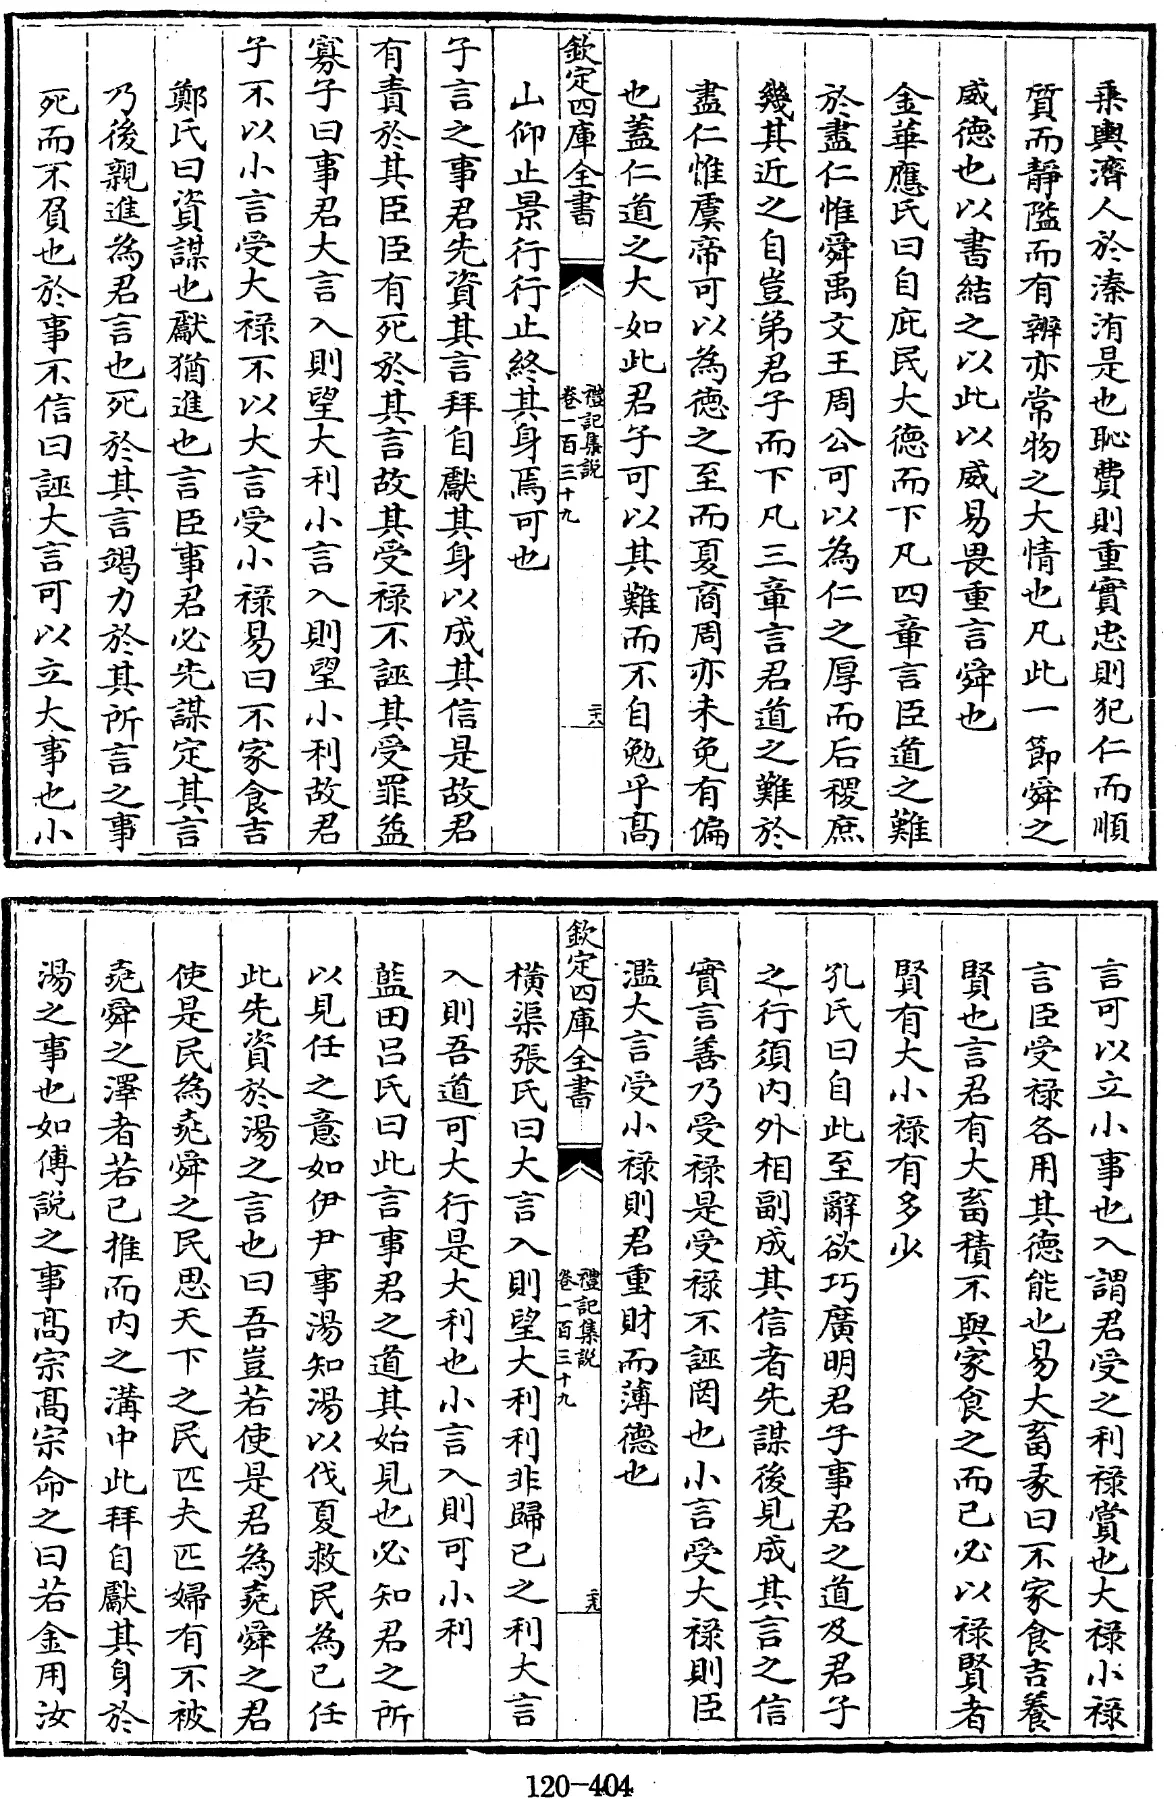 乘輿濟人於溱洧是也恥費則重實忠則犯仁而順
質而靜隘而有辨亦常物之大情也凡此一節舜之
威德也以書結之以此以威易畏重言舜也
金華應氏曰自庇民大德而下凡四章言臣道之難
於盡仁惟舜禹文王周公可以為仁之厚而后稷庶
幾其近之自豈弟君子而下凡三章言君道之難於
盡仁惟虞帝可以為德之至而夏商周亦未免有偏
也蓋仁道之大如此君子可以其難而不自勉乎高
欽定四庫全書
禮記集說
卷一百三十九
二十八
山仰止景行行止終其身焉可也
子言之事君先資其言拜自獻其身以成其信是故君
有責於其臣臣有死於其言故其受禄不誣其受罪益
寡子曰事君大言入則望大利小言入則望小利故君
子不以小言受大禄不以大言受小禄易曰不家食吉
鄭氏曰資謀也獻猶進也言臣事君必先謀定其言
乃後親進為君言也死於其言竭力於其所言之事
死而不負也於事不信曰誣大言可以立大事也小
言可以立小事也入謂君受之利禄賞也大禄小禄
言臣受禄各用其德能也易大畜彖曰不家食吉養
賢也言君有大畜積不與家食之而已必以禄賢者
賢有大小禄有多少
孔氏曰自此至辭欲巧廣明君子事君之道及君子
之行須内外相副成其信者先謀後見成其言之信
實言善乃受禄是受禄不誣罔也小言受大禄則臣
濫大言受小禄則君重財而薄德也
欽定四庫全書
禮記集說
卷一百三十九
二十九
橫渠張氏曰大言入則望大利利非歸己之利大言
入則吾道可大行是大利也小言入則可小利
藍田吕氏曰此言事君之道其始見也必知君之所
以見任之意如伊尹事湯知湯以伐夏救民為己任
此先資於湯之言也曰吾豈若使是君為堯舜之君
使是民為堯舜之民思天下之民匹夫匹婦有不被
堯舜之澤者若已推而内之溝中此拜自獻其身於
湯之事也如傅說之事高宗高宗命之曰若金用汝
120-404